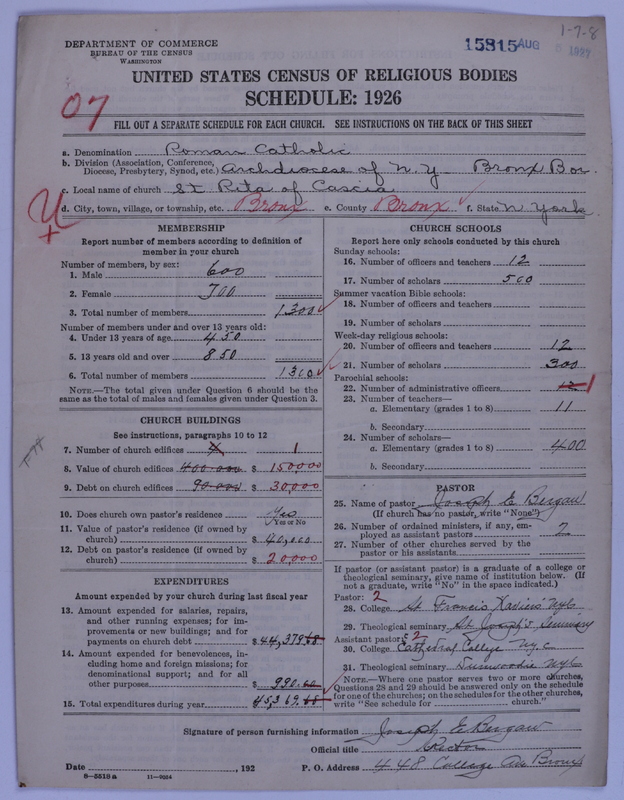 1-7-8
DEPARTMENT OF COMMERCE
BUREAU OF THE CENSUS
WASHINGTON
15815 AUG 1927
UNITED STATES CENSUS OF RELIGIOUS BODIES
SCHEDULE: 1926
07
FILL OUT A SEPARATE SCHEDULE FOR EACH CHURCH. SEE INSTRUCTIONS ON THE BACK OF THIS SHEET
a. Denomination Roman Catholic
b. Division (Association, Conference, Diocese, Presbytery, Synod, etc.) Archdiocese of N.Y. Bronx Bor.
c. Local name of church St Rita of Cascia
d. City, town, village, or township, etc. Bronx e. County Bronx f. State N. York
U
+
MEMBERSHIP
Report number of members according to definition of
member in your church
Number of members, by sex:
1. Male 600
2. Female 700
3. Total number of members 1300
Number of members under and over 13 years old:
4. Under 13 years of age 450
5. 13 years old and over 850
6. Total number of members 1300
NOTE.—The total given under Question 6 should be the
same as the total of males and females given under Question 3.
CHURCH BUILDINGS
See instructions, paragraphs 10 to 12
7. Number of church edifices 1
8. Value of church edifices 400.000 $ 150,000
9. Debt on church edifices 90.000 $ 30,000
10. Does church own pastor's residence Yes
Yes or No
11. Value of pastor's residence (if owned by
church) $ 40,000
12. Debt on pastor's residence (if owned by
church) $ 20,000
EXPENDITURES
Amount expended by your church during last fiscal year
13. Amount expended for salaries, repairs,
and other running expenses; for im-
provements or new buildings; and for
payments on church debt $ 44,379.68
14. Amount expended for benevolences, in-
cluding home and foreign missions; for
denominational support; and for all
other purposes $ 990.00
15. Total expenditures during year $ 45,369.68
CHURCH SCHOOLS
Report here only schools conducted by this church
Sunday schools:
16. Number of officers and teachers 12
17. Number of scholars 500
Summer vacation Bible schools:
18. Number of officers and teachers
19. Number of scholars
Week-day religious schools:
20. Number of officers and teachers 12
21. Number of scholars 300
Parochial schools:
22. Number of administrative officers 12 1
23. Number of teachers—
a. Elementary (grades 1 to 8) 11
b. Secondary
24. Number of scholars—
a. Elementary (grades 1 to 8) 400
b. Secondary
PASTOR
25. Name of pastor Joseph E Bergan
(If church has no pastor, write "None")
26. Number of ordained ministers, if any, em-
ployed as assistant pastors 2
27. Number of other churches served by the
pastor or his assistants
If pastor (or assistant pastor) is a graduate of a college or
theological seminary, give name of institution below. (If
not a graduate, write "No" in the space indicated.)
Pastor: 2
28. College St Francis Xavier's N.Y.C.
29. Theological seminary St Joseph's Seminary
Assistant pastor: 2
30. College Cathedral College N.Y.C
31. Theological seminary Dunwoodie N.Y.C.
NOTE.—Where one pastor serves two or more churches,
Questions 28 and 29 should be answered only on the schedule
for one of the churches; on the schedules for the other churches,
write "See schedule for church."
Signature of person furnishing information Joseph E Bergan
Official title Rector
Date , 192 P. O. Address 448 College Ave Bronx
8-5518 a 11-9264